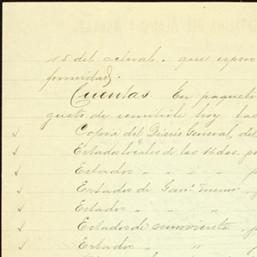 15 del actual. que espre
formidad.
Cuentas En paquete
gusto de remitirle hoy las
Copia del Diario General, del
Estados locales de las
Estados
Estados de Gan.
Estados
Estados de movimiento
Estados